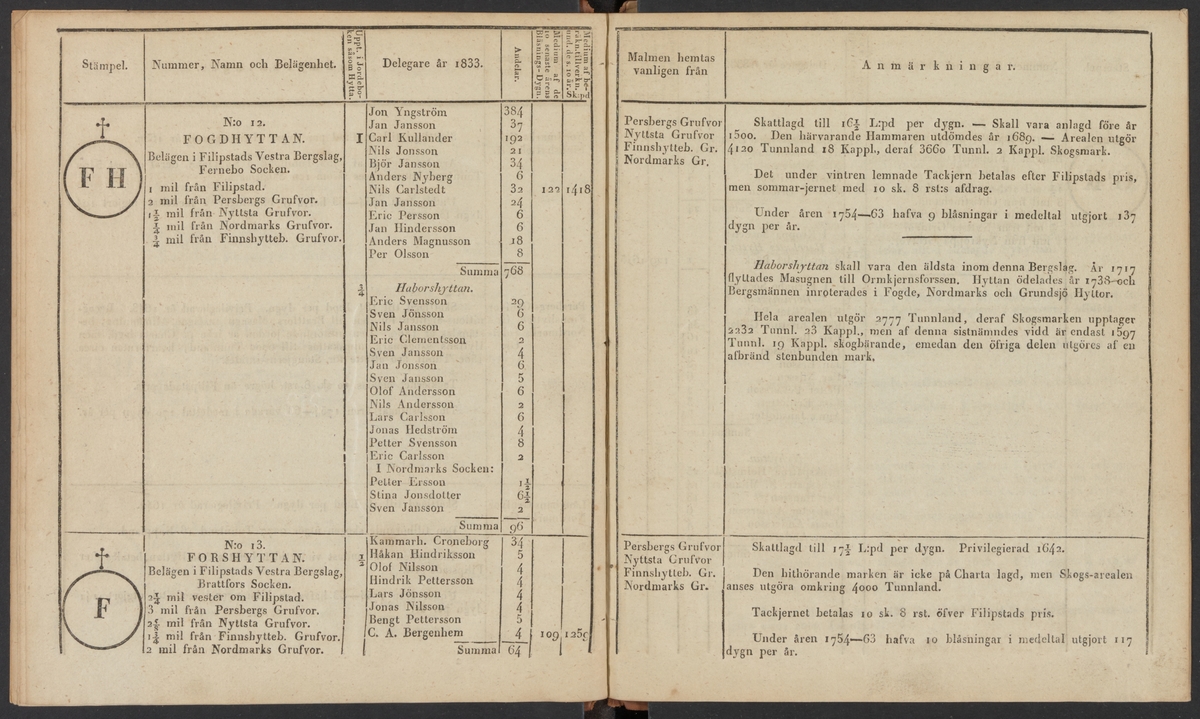 Stämpel.
Nummer, Namn och Belägenhet.
Uppt. i Jordebo-
ken såsom Hytta.
Delegare år 1833.
Andelar.
Medium af de
10 senaste årens
Blåsnings-Dygn.
Medium af be-
räkn. tillverkn.
und. de s. 10 år.
Skpd
F H
N:o 12.
FOGDHYTTAN.
Belägen i Filipstads Vestra Bergslag,
Fernebo Socken.
1 mil från Filipstad.
2 mil från Persbergs Grufvor.
1½ mil från Nyttsta Grufvor.
mil från Nordmarks Grufvor.
mil från Finnshytteb. Grufvor.
I
Jon Yngström 384
Jan Jansson 37
Carl Kullander 192
Nils Jonsson 21
Björ Jansson 34
Anders Nyberg 6
Nils Carlstedt 32 122 1418
Jan Jansson 24
Eric Persson 6
Jan Hindersson 6
Anders Magnusson 18
Per Olsson 8
Summa 768
Haborshyttan.
Eric Svensson 29
Sven Jönsson 6
Nils Jansson 6
Eric Clementsson 2
Sven Jansson 4
Jan Jonsson 6
Sven Jansson 5
Olof Andersson 6
Nils Andersson 2
Lars Carlsson 6
Jonas Hedström 4
Petter Svensson 8
Eric Carlsson 2
I Nordmarks Socken:
Petter Ersson 1½
Stina Jonsdotter 6½
Sven Jansson 2
Summa 96
F
N:o 13.
FORSHYTTAN.
Belägen i Filipstads Vestra Bergslag,
Brattfors Socken.
mil vester om Filipstad.
3 mil från Persbergs Grufvor.
mil från Nyttsta Grufvor.
mil från Finnshytteb. Grufvor.
2 mil från Nordmarks Grufvor.
½
Kammarh. Croneborg 34
Håkan Hindriksson 5
Olof Nilsson 4
Hindrik Pettersson 4
Lars Jönsson 4
Jonas Nilsson 4
Bengt Pettersson 5
C. A. Bergenhem 4 109 1259
Summa 64
Malmen hemtas
vanligen från
Anmärkningar.
Persbergs Grufvor
Nyttsta Grufvor
Finnshytteb. Gr.
Nordmarks Gr.
Skattlagd till 16½ L:pd per dygn. — Skall vara anlagd före år
1500. Den härvarande Hammaren utdömdes år 1689. — Arealen utgör
4120 Tunnland 18 Kappl., deraf 3660 Tunnl. 2 Kappl. Skogsmark.
Det under vintren lemnade Tackjern betalas efter Filipstads pris,
men sommar-jernet med 10 sk. 8 rst:s afdrag.
Under åren 1754—63 hafva 9 blåsningar i medeltal utgjort 137
dygn per år.
Haborshyttan skall vara den äldsta inom denna Bergslag. År 1717
flyttades Masugnen till Ormkjernsforssen. Hyttan ödelades år 1738 och
Bergsmännen inroterades i Fogde, Nordmarks och Grundsjö Hyttor.
Hela arealen utgör 2777 Tunnland, deraf Skogsmarken upptager
2232 Tunnl. 23 Kappl., men af denna sistnämndes vidd är endast 1597
Tunnl. 19 Kappl. skogbärande, emedan den öfriga delen utgöres af en
afbränd stenbunden mark.
Persbergs Grufvor
Nyttsta Grufvor
Finnshytteb. Gr.
Nordmarks Gr.
Skattlagd till 17½ L:pd per dygn. Privilegierad 1642.
Den hithörande marken är icke på Charta lagd, men Skogs-arealen
anses utgöra omkring 4000 Tunnland.
Tackjernet betalas 10 sk. 8 rst. öfver Filipstads pris.
Under åren 1754—63 hafva 10 blåsningar i medeltal utgjort 117
dygn per år.